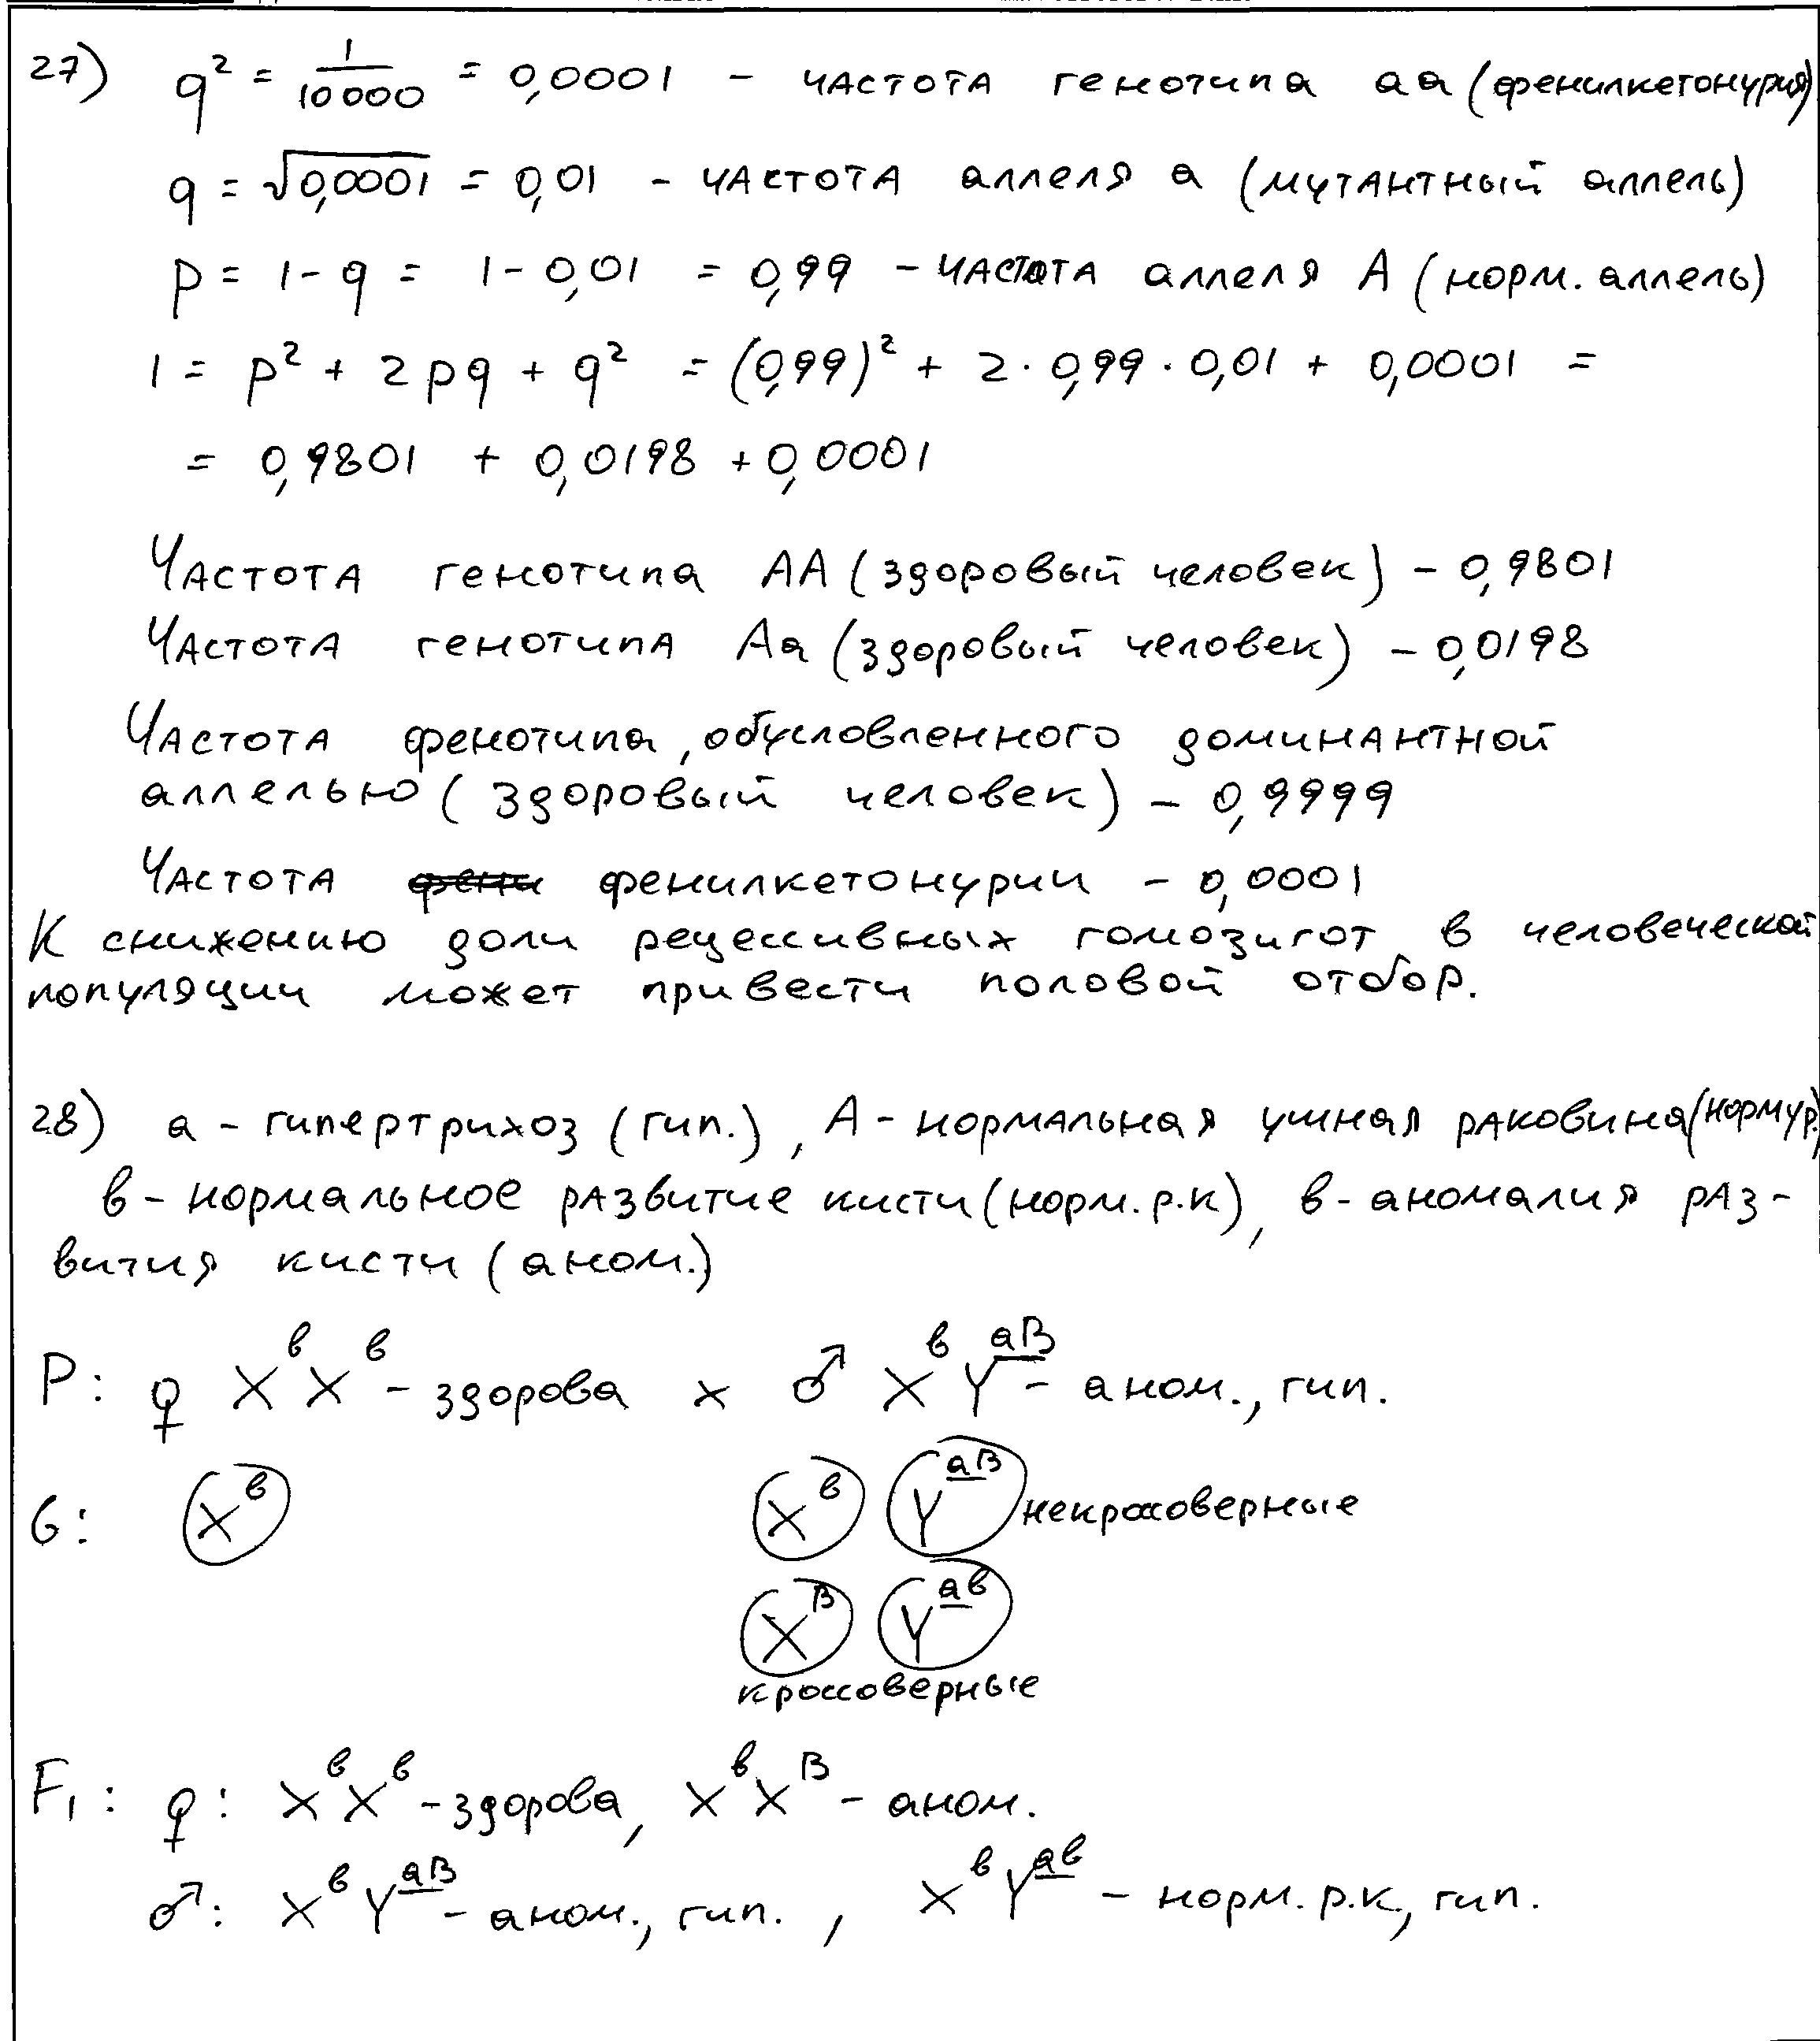 27) q² = 1/10000 = 0,0001 – частота генотипа аа (фенилкетонурия)
q = √0,0001 = 0,01 – частота аллеля а (мутантный аллель)
p = 1 – q = 1 – 0,01 = 0,99 – частота аллеля А (норм. аллель)
1 = p² + 2pq + q² = (0,99)² + 2 · 0,99 · 0,01 + 0,0001 =
= 0,9801 + 0,0198 + 0,0001
Частота генотипа АА (здоровый человек) – 0,9801
Частота генотипа Аа (здоровый человек) – 0,0198
Частота фенотипа, обусловленного доминантной
аллелью (здоровый человек) – 0,9999
Частота фенилкетонурии – 0,0001
К снижению доли рецессивных гомозигот в человеческой
популяции может привести половой отбор.
28) а – гипертрихоз (гип.), А – нормальная ушная раковина (норм ур.)
в – нормальное развитие кисти (норм. р.к), в – аномалия раз-
вития кисти (аном.)
P: ♀ XᵇXᵇ – здорова x ♂ XᵇYᵃᴮ – аном., гип.
G: Xᵇ Xᵇ Yᵃᴮ некроссоверные
Xᴮ Yᵃᵇ
кроссоверные
F₁: ♀: XᵇXᵇ – здорова, XᵇXᴮ – аном.
♂: XᵇYᵃᴮ – аном., гип., XᵇYᵃᵇ – норм. р.к, гип.